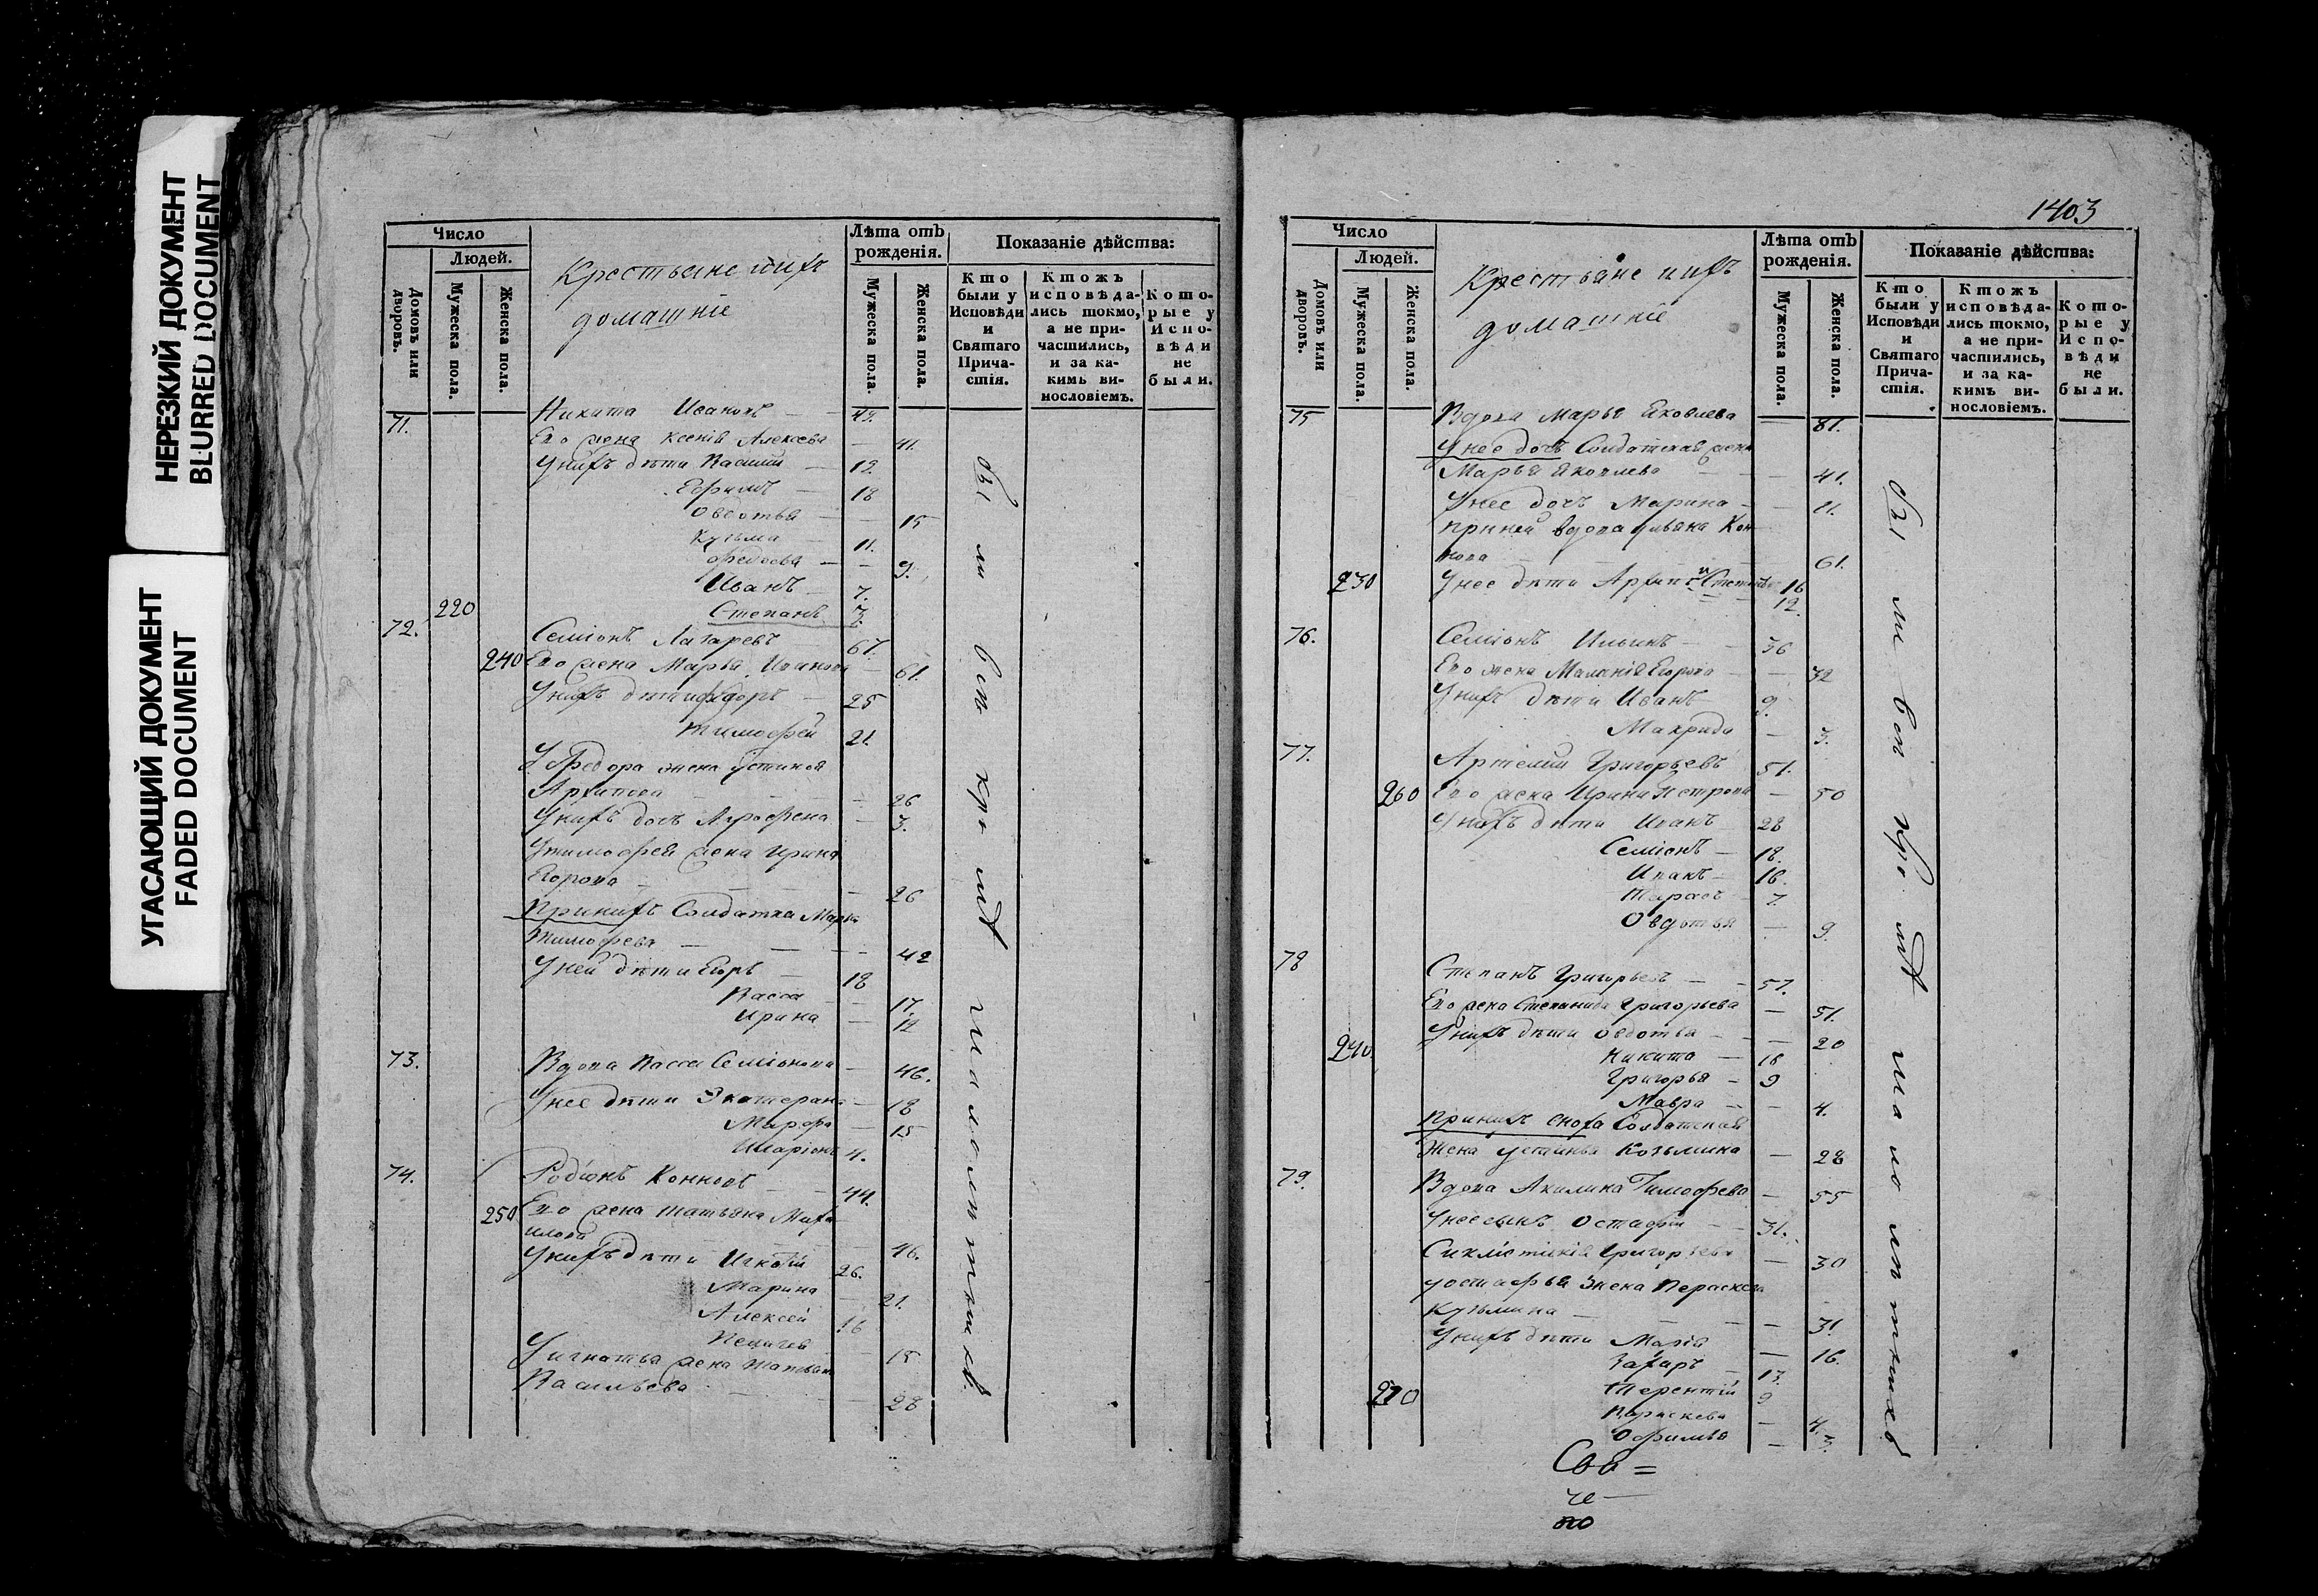 НЕРЕЗКИЙ ДОКУМЕНТ
BLURRED DOCUMENT
УГАСАЮЩИЙ ДОКУМЕНТ
FADED DOCUMENT
Число
Людей.
Домовъ или дворовъ.
Мужеска пола.
Женска пола.
Крестьяне ихъ
домашніе
Лѣта отъ
рожденія.
Мужеска пола.
Женска пола.
Показаніе дѣйства:
Кто
были у
Исповѣди
и
Святаго
Прича-
стія.
Ктожъ
исповѣда-
лись токмо,
а не при-
частились,
и за ка-
кимъ ви-
нословіемъ.
Кото-
рые у
Испо-
вѣди
не
были.
71. Никита Ивановъ 49.
Его жена Ксенія Алексева 41.
У нихъ дѣти Василій 19.
Ефимъ 18
Овдотья 15
Кузьма 11.
Федосья 9.
Иванъ 7.
220 Степанъ 3.
72. Семіонъ Лазаревъ 67.
240 Его жена Марья Иванова 61.
У нихъ дѣти Федоръ 25
Тимофей 21.
У Федора жена Устинья
Архипова 26
У нихъ дочь Агрофена 3.
У Тимофея жена Ирина
Егорова 26
При нихъ Солдатка Марья
Тимофева 42
У ней дѣти Егоръ 18
Васса 17.
Ирина 12
73. Вдова Васса Семіонова 46.
У нее дѣти Екатерина 18
Марфа 15
Иларіонъ 4.
74. Родіонъ Кононовъ 44.
250 Его жена Татьяна Миха
илова 46.
У нихъ дѣти Игнатій 26.
Марина 21.
Алексей 16
15
У Игнатья жена
Васильева 28
были всѣ кромѣ малолѣтныхъ.
1403
Число
Людей.
Домовъ или дворовъ.
Мужеска пола.
Женска пола.
Крестьяне ихъ
домашніе
Лѣта отъ
рожденія.
Мужеска пола.
Женска пола.
Показаніе дѣйства:
Кто
были у
Исповѣди
и
Святаго
Прича-
стія.
Ктожъ
исповѣда-
лись токмо,
а не при-
частились,
и за ка-
кимъ ви-
нословіемъ.
Кото-
рые у
Испо-
вѣди
не
были.
75 Вдова Марья Яковлева 81.
У нее дочь Солдатская жена
Марья Яковлева 41.
У нее дочь Марина 11.
При ней вдова Ульяна Кон
нова 61.
230 У нее дѣти Архипъ и Степанъ 16
12.
76. Семіонъ Ильинъ 36
Его жена Маланія Егорова 32
У нихъ дѣти Иванъ 9.
Макрида 3.
77. Артемій Григорьевъ 51.
260 Его жена Ирина Петрова 50
У нихъ дѣти Иванъ 28
Семіонъ 18.
Иванъ 16.
Тарасъ 7.
Овдотья 9.
78 Степанъ Григорьевъ 57.
Его жена Степанида Григорьева 51.
У нихъ дѣти Овдотья 20
240. Никита 18
Григорья 9
Мавра 4.
При нихъ сноха Солдатская
жена Устинья Козьмина 28
79. Вдова Акилина Тимофева 55
У нее сынъ Остафій 31.
Григорьева 30
У Остафья жена Пераскева
Кузьмина 31.
У нихъ дѣти Марія 16.
Захаръ 13.
270 Терентій 9
Параскева 4.
Офимья 3.
были всѣ кромѣ малолѣтныхъ
Сва =
ще
по